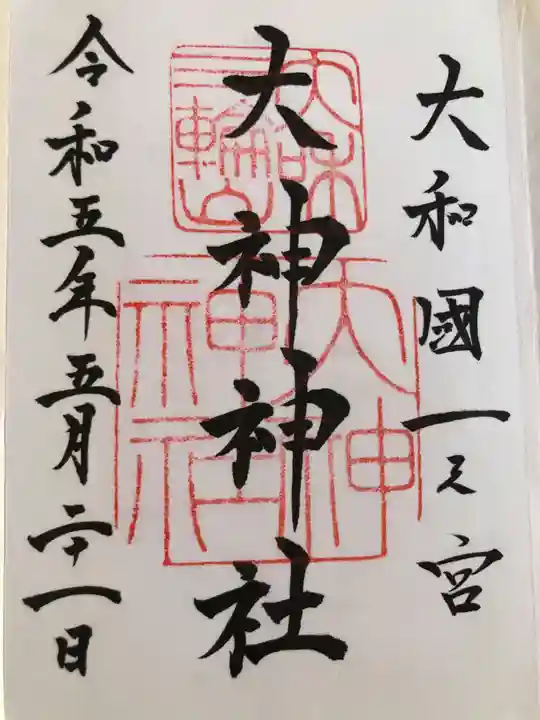 大和國一之宮
大神神社
令和五年五月二十一日
大和
三輪山
大神
神社